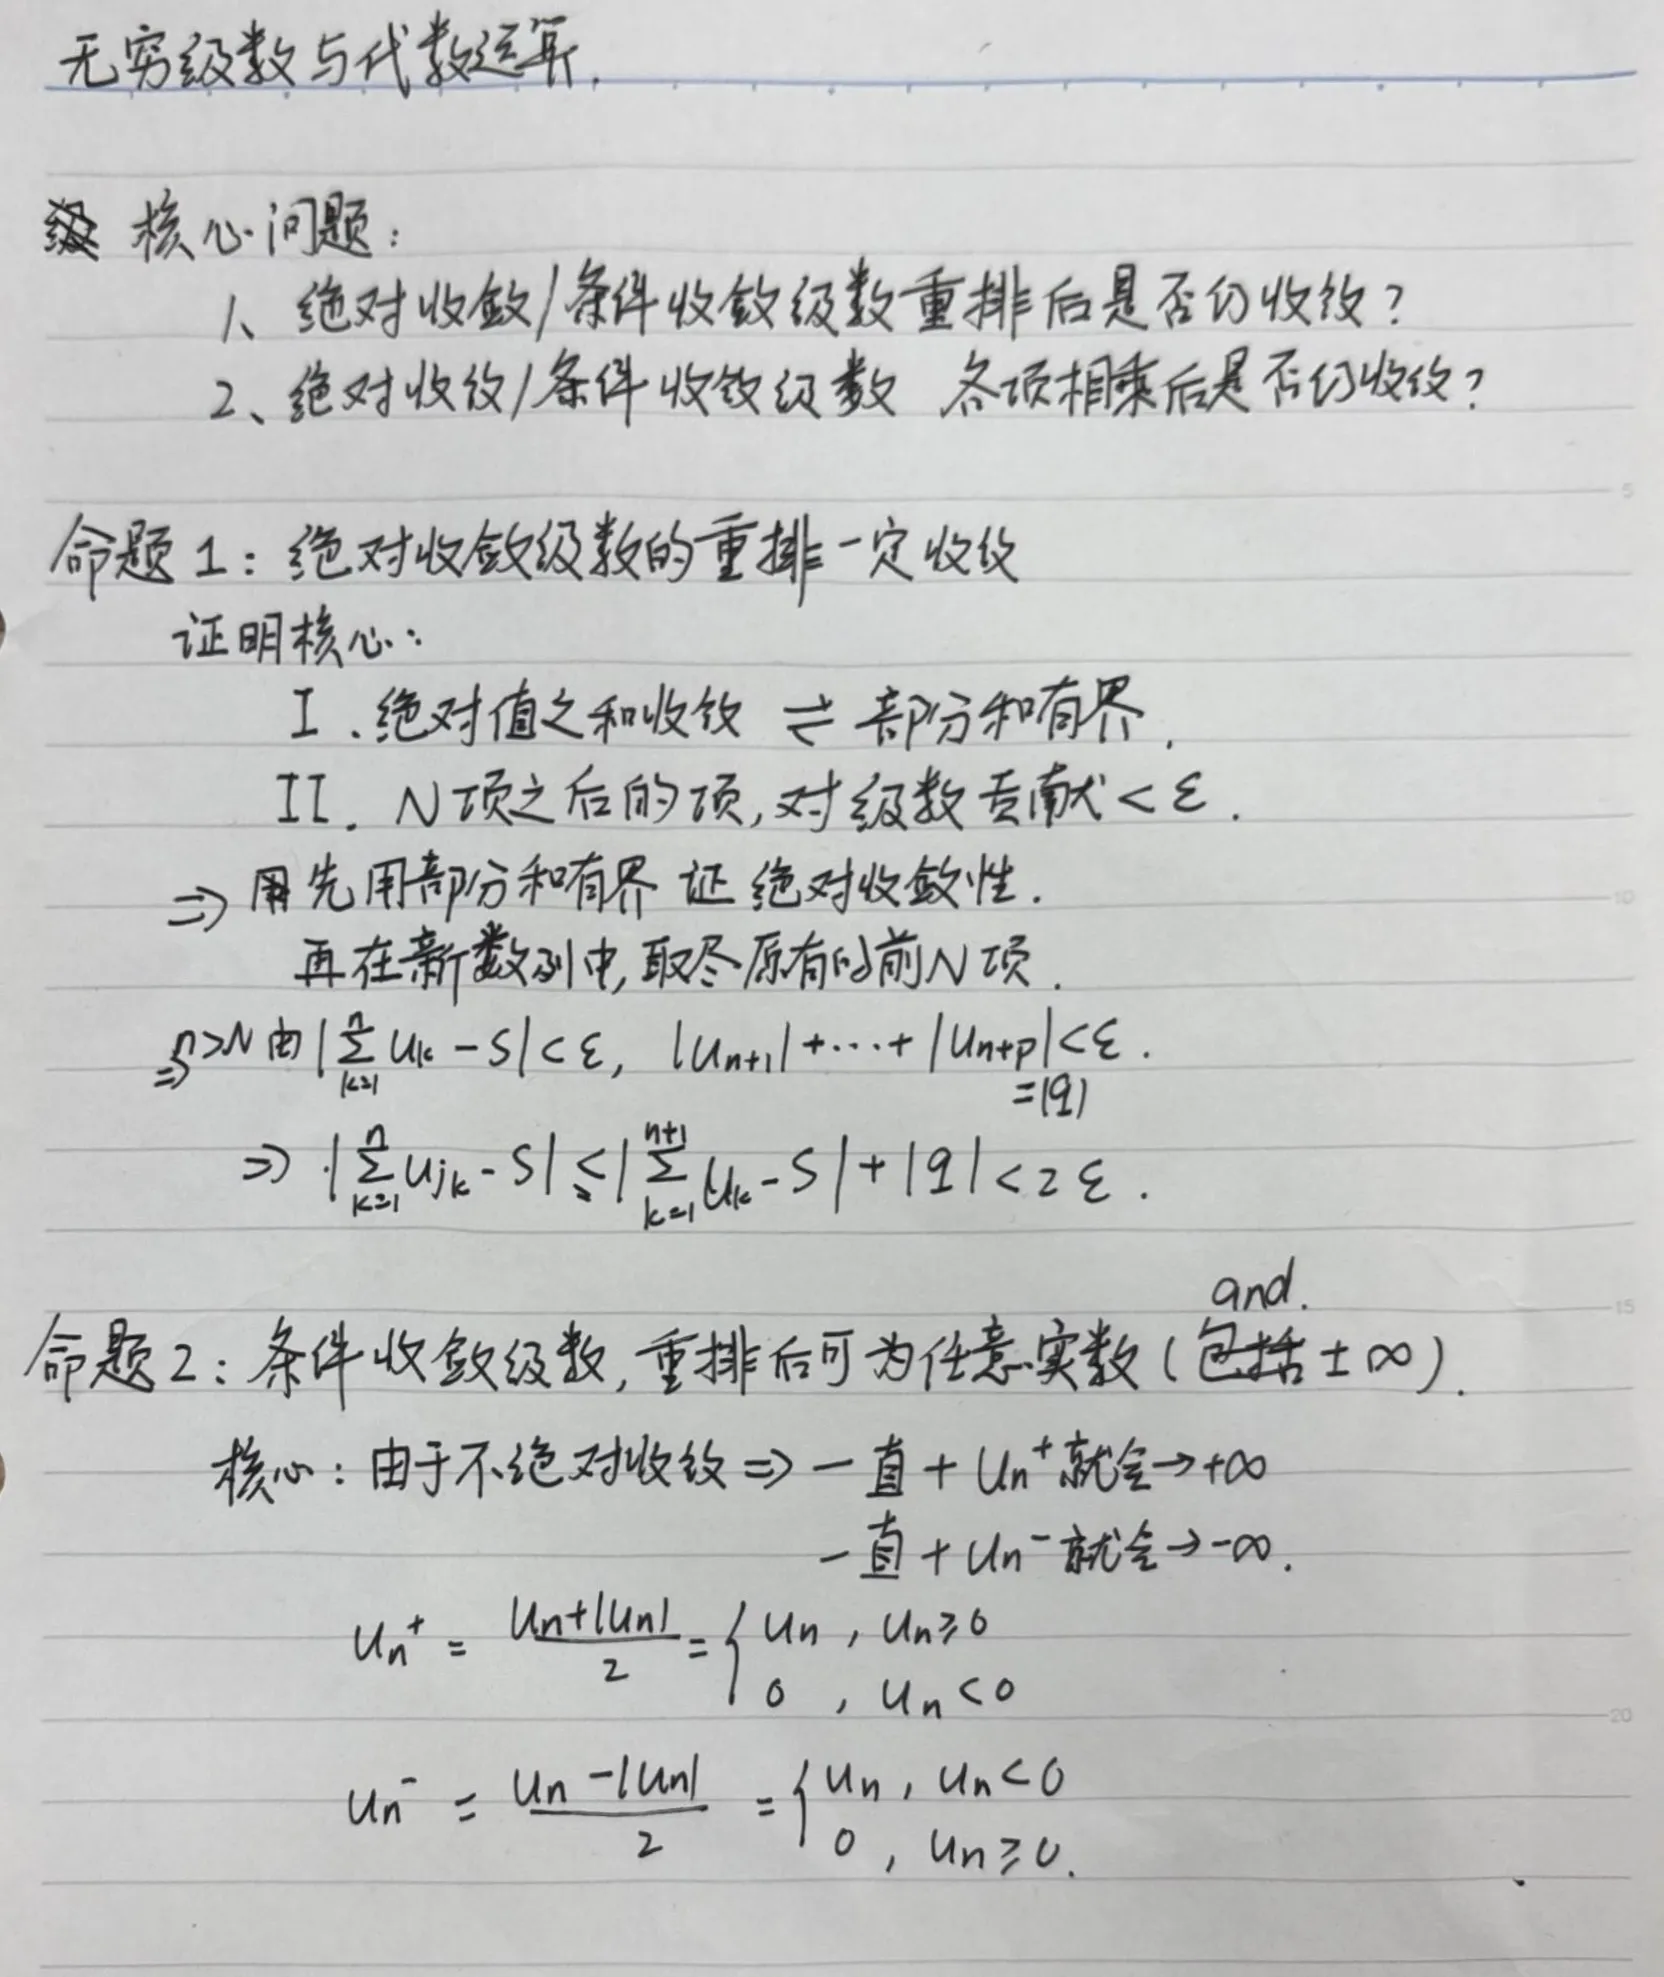 无穷级数与代数运算.
核心问题:
1、绝对收敛/条件收敛级数重排后是否仍收敛?
2、绝对收敛/条件收敛级数 各项相乘后是否仍收敛?
5
命题1: 绝对收敛级数的重排一定收敛
证明核心:
I.绝对值之和收敛 ⇌ 部分和有界.
II. N项之后的项,对级数贡献<ε.
10
⇒ 先用部分和有界 证 绝对收敛性.
再在新数列中,取尽原有的前N项.
⇒ n>N 由|∑_{k=1}^{n} u_k - S|<ε, |u_{n+1}|+···+|u_{n+p}|<ε.
=|q|
⇒ |∑_{k=1}^{n} u_{j_k} - S| ≤ |∑_{k=1}^{n+1} u_k - S|+|q|<2ε.
and.
15
命题2: 条件收敛级数,重排后可为任意实数(包括±∞).
核心: 由于不绝对收敛⇒一直+u_n^+就会→+∞
一直+u_n^-就会→-∞.
u_n^+ = \frac{u_n+|u_n|}{2} = { u_n , u_n≥0
0 , u_n<0
20
u_n^- = \frac{u_n-|u_n|}{2} = { u_n , u_n<0
0 , u_n≥0.